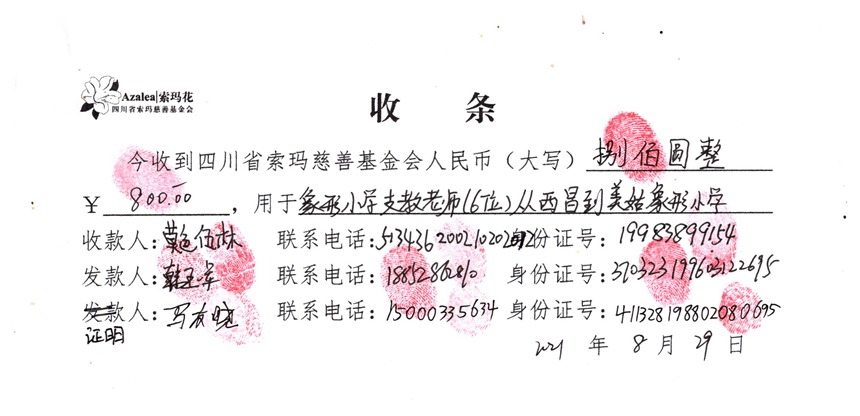 Azalea|索玛花
四川省索玛慈善基金会
收 条
今收到四川省索玛慈善基金会人民币（大写）捌佰圆整
￥ 800.00 ，用于象形小学支教老师(6位)从西昌到美姑象形小学
收款人： 伍林 联系电话： 身份证号：19983899154
发款人： 联系电话： 身份证号：370323199603122695
发款人：马友晓 联系电话：15000335634 身份证号：411328198802080695
证明
2021 年 8 月 29 日